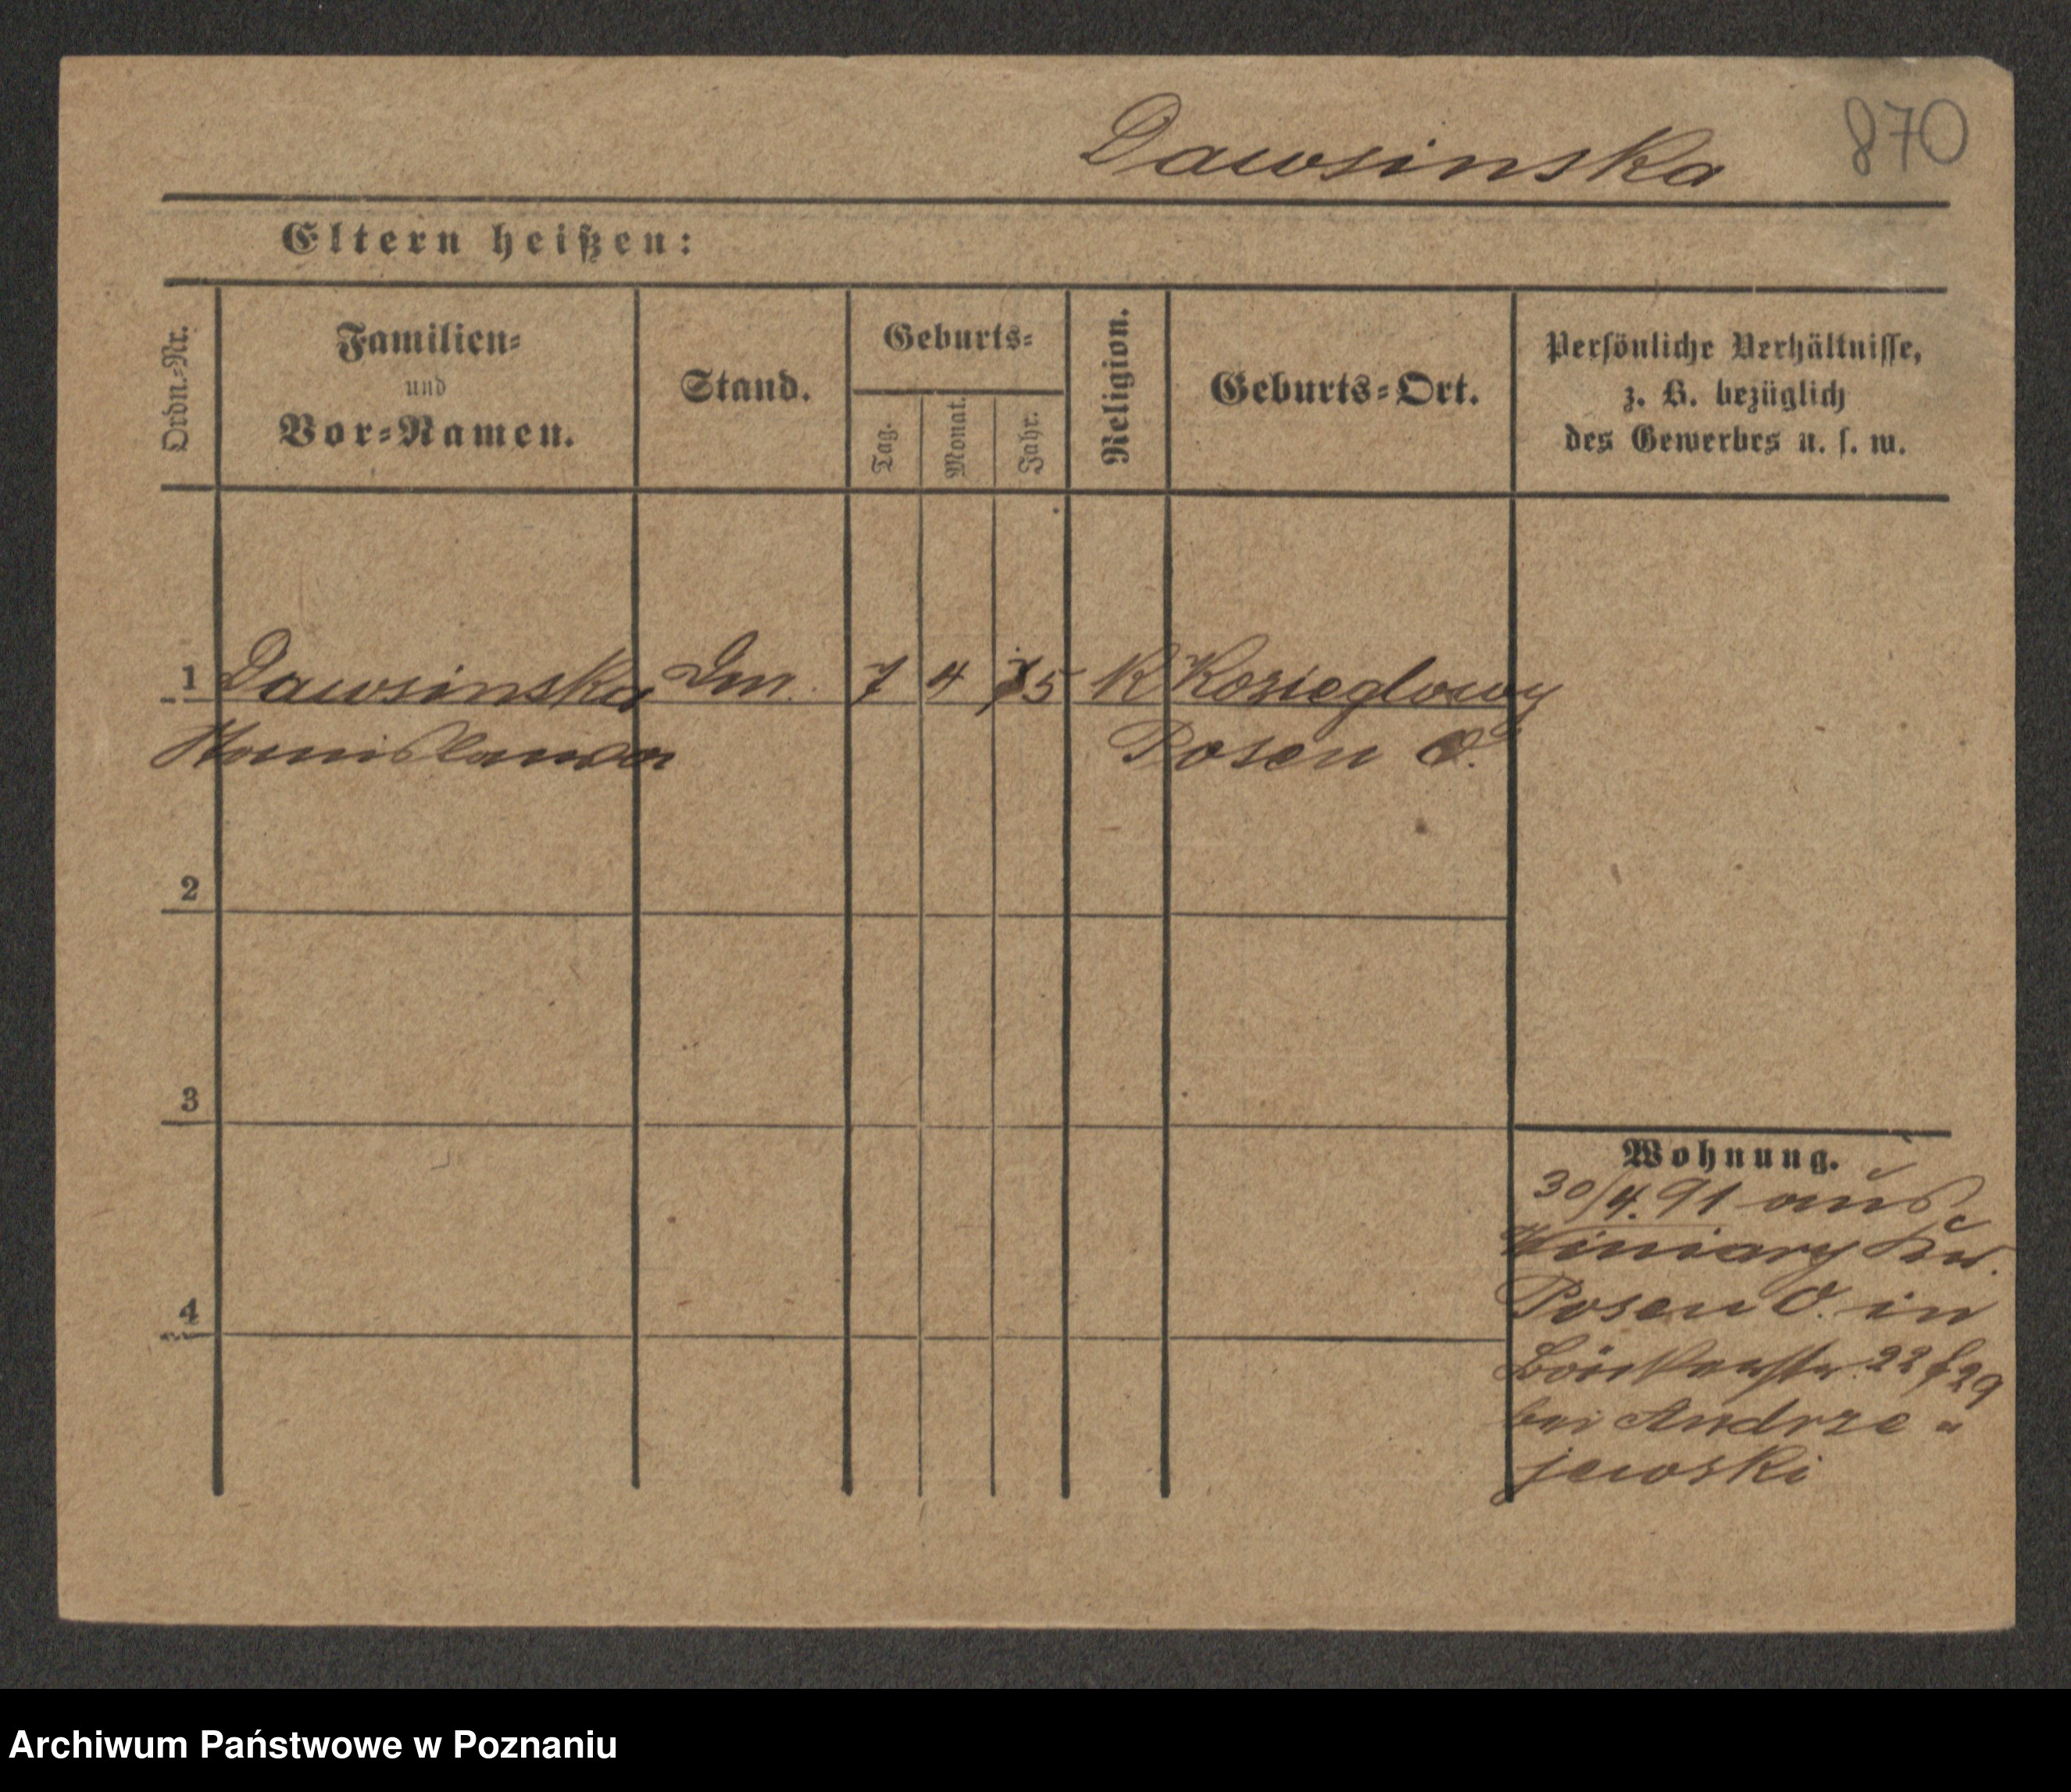 870
Dawsinska
Eltern heißen:
Ordn.-Nr.
Familien-
und
Vor-Namen.
Stand.
Geburts-
Tag.
Monat.
Jahr.
Religion.
Geburts-Ort.
Persönliche Verhältnisse,
z. B. bezüglich
des Gewerbes u. s. w.
1 Dawsinska Dm. 7 4 75 K Kozieglowy
Stanislawa Posen O.
2
3
4
Wohnung.
30/4.91 aus
Winiary Kr.
Posen O. in
22 29
bei Andrze-
jewski
Archiwum Państwowe w Poznaniu